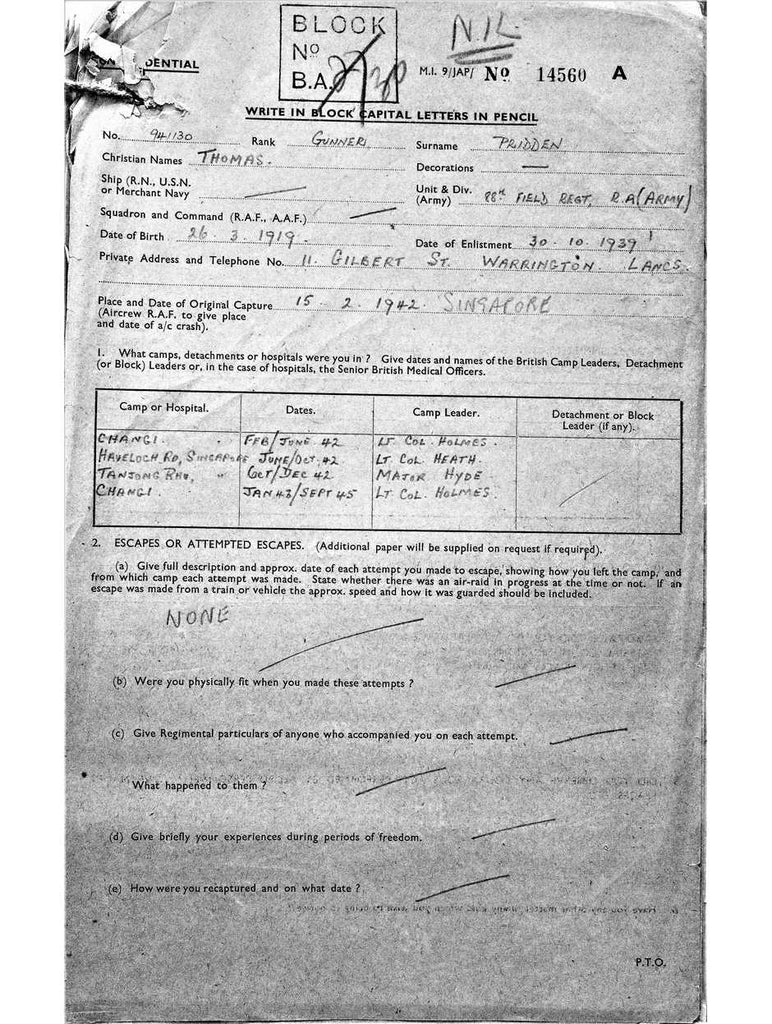 BLOCK
No
B.A.
NIL
DENTIAL
M.I. 9/JAP/ No 14560 A
WRITE IN BLOCK CAPITAL LETTERS IN PENCIL
No. 941130 Rank GUNNER Surname PRIDDEN
Christian Names THOMAS. Decorations —
Ship (R.N., U.S.N.
or Merchant Navy
Unit & Div.
(Army) 88th FIELD REGT, R.A (ARMY)
Squadron and Command (R.A.F., A.A.F.) —
Date of Birth 26. 3. 1919. Date of Enlistment 30. 10. 1939
Private Address and Telephone No. 11. GILBERT ST. WARRINGTON. LANCS.
Place and Date of Original Capture 15 . 2. 1942. SINGAPORE
(Aircrew R.A.F. to give place
and date of a/c crash).
1. What camps, detachments or hospitals were you in ? Give dates and names of the British Camp Leaders, Detachment
(or Block) Leaders or, in the case of hospitals, the Senior British Medical Officers.
Camp or Hospital. Dates. Camp Leader. Detachment or Block
Leader (if any).
CHANGI. FEB/JUNE 42 LT COL. HOLMES.
HAVELOCH RD, SINGAPORE JUNE/OCT. 42 LT COL HEATH.
TANJONG RHU, " OCT/DEC 42 MAJOR HYDE
CHANGI. JAN 43/SEPT 45 LT COL. HOLMES.
2. ESCAPES OR ATTEMPTED ESCAPES. (Additional paper will be supplied on request if required).
(a) Give full description and approx. date of each attempt you made to escape, showing how you left the camp, and
from which camp each attempt was made. State whether there was an air-raid in progress at the time or not. If an
escape was made from a train or vehicle the approx. speed and how it was guarded should be included.
NONE
(b) Were you physically fit when you made these attempts ?
(c) Give Regimental particulars of anyone who accompanied you on each attempt.
What happened to them ?
(d) Give briefly your experiences during periods of freedom.
(e) How were you recaptured and on what date ?
P.T.O.